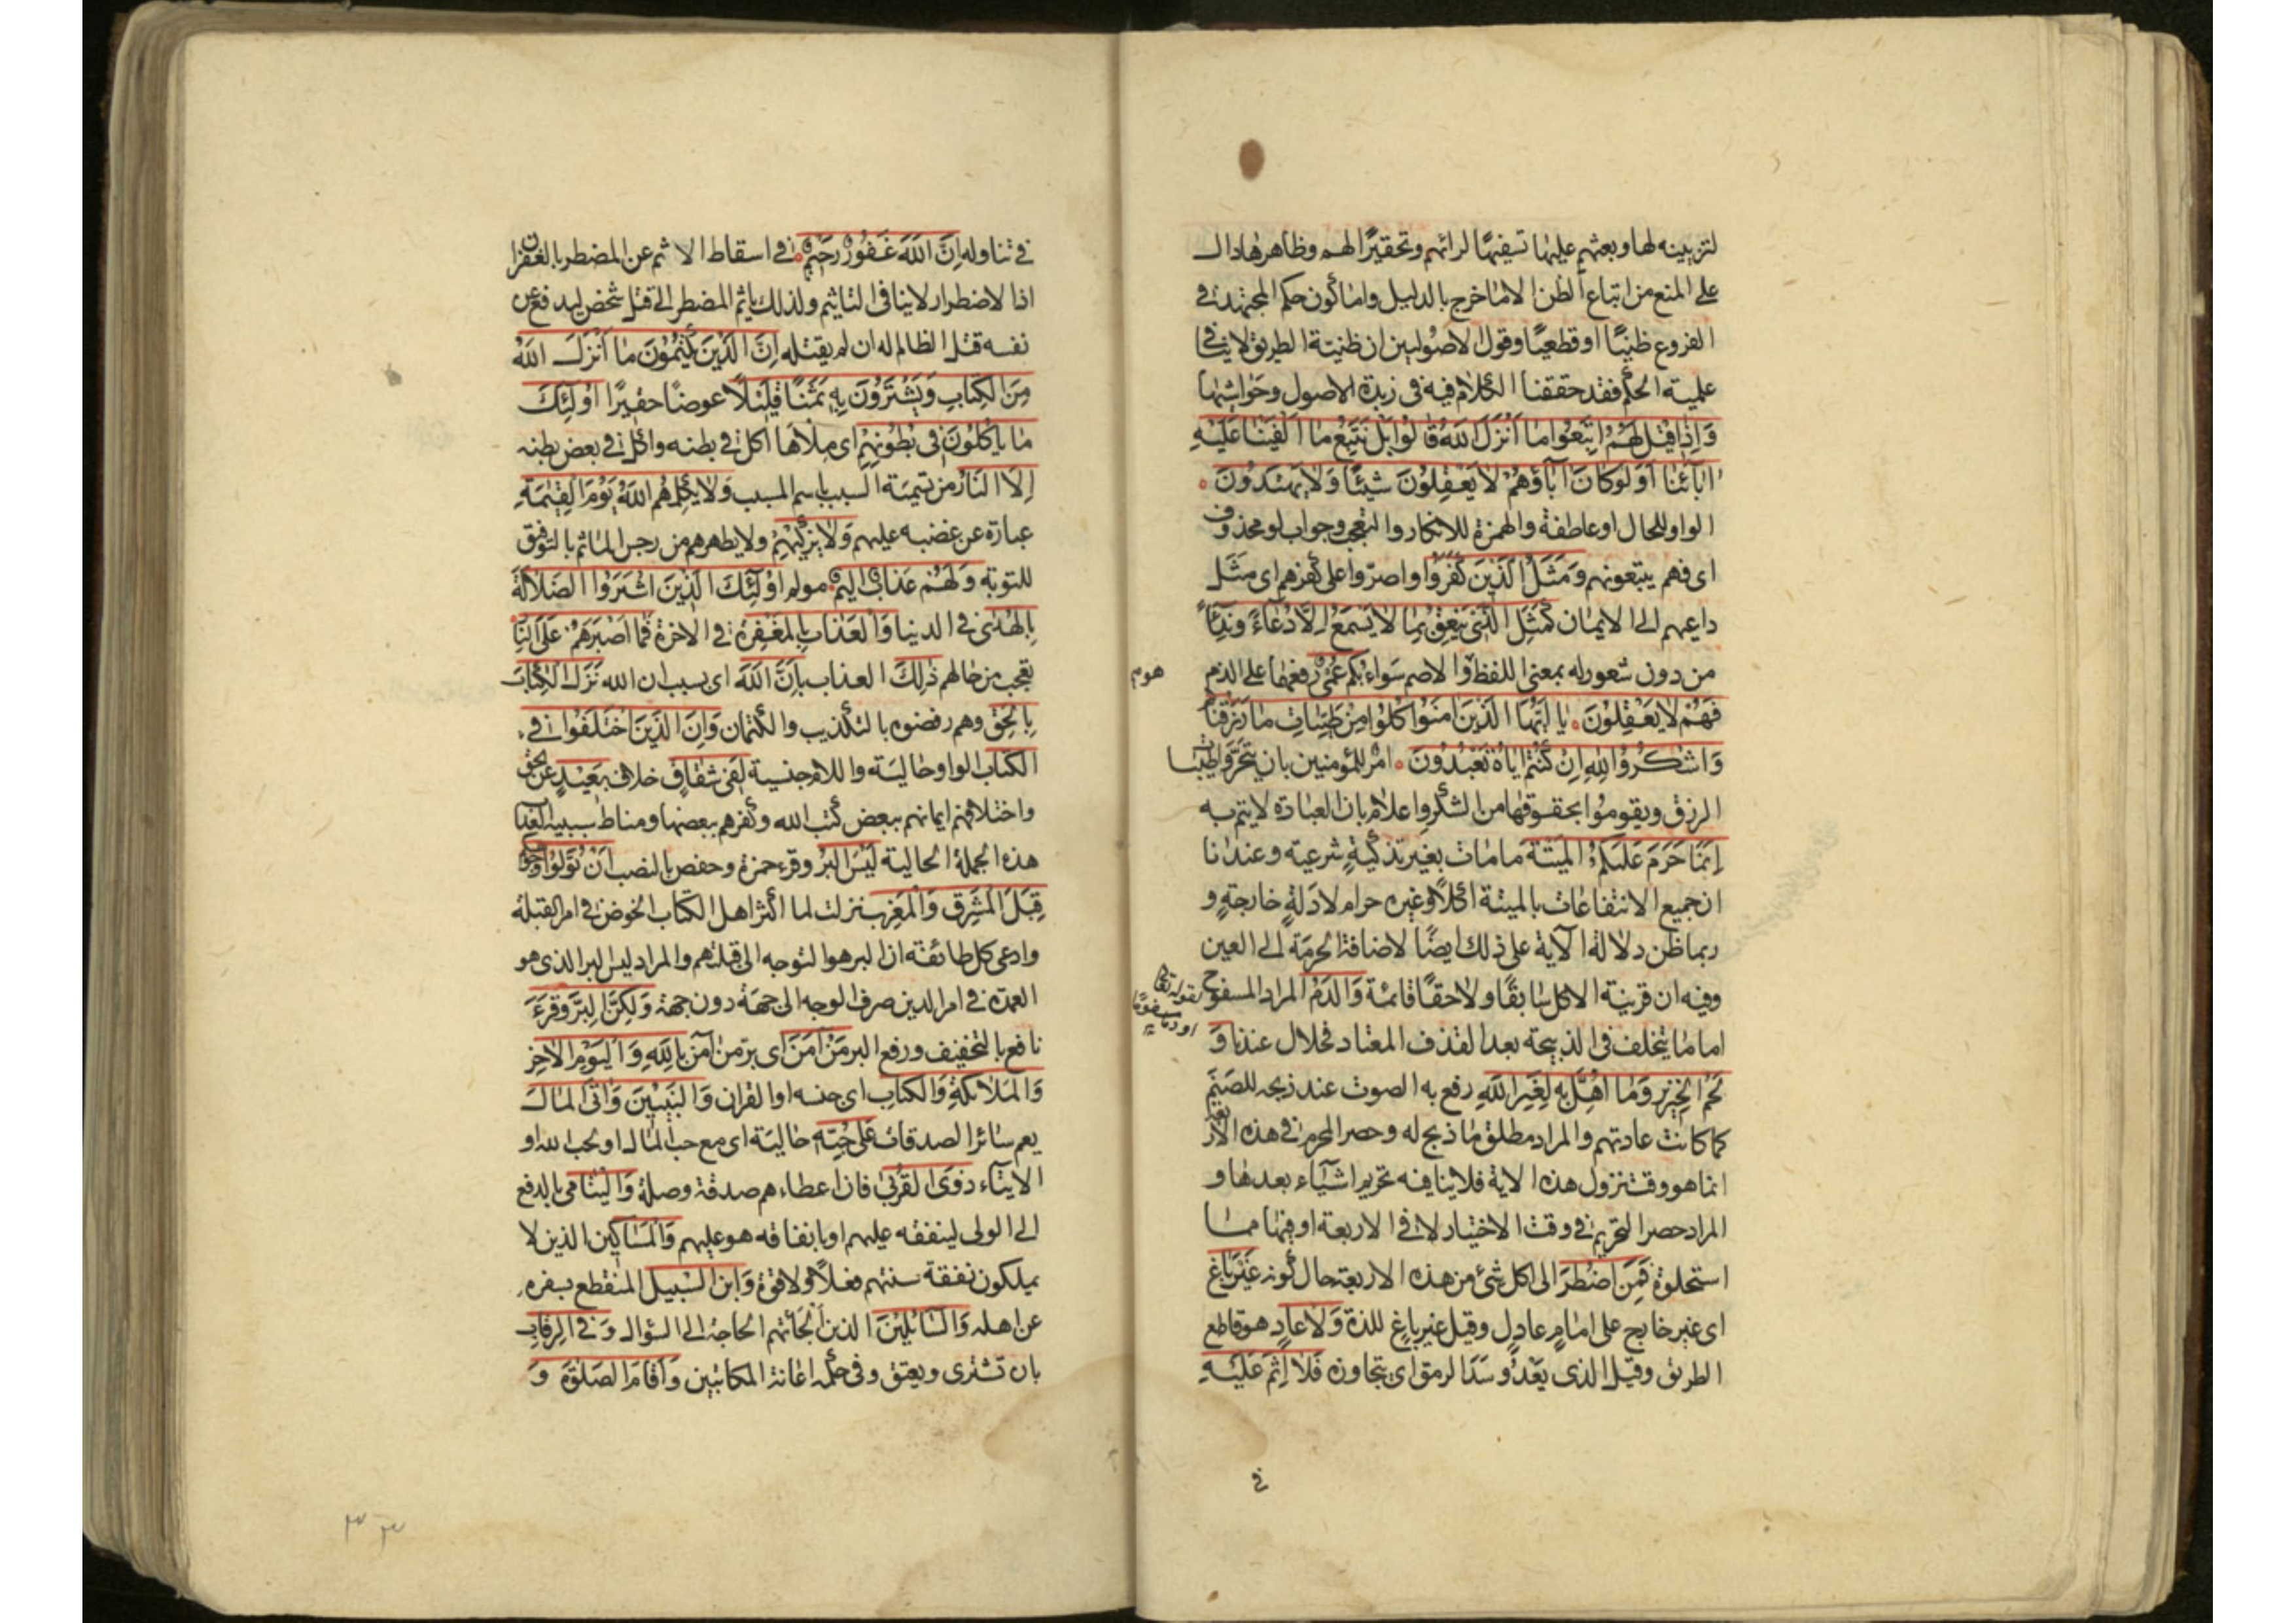 لتزيينه لها وبعثهم عليها تسفيهًا لرائهم وتحقيرًا لهم وظاهرها دال
على المنع من اتباع الظن الا ما خرج بالدليل واما كون حكم المجتهد في
الفروع ظنيًا او قطعيًا وقول الاصوليين ان ظنية الطريق لا ينافي
علمية الحكم فقد حققنا الكلام فيه في زبدة الاصول وحواشيها
وَاِذَا قِيْلَ لَهُمُ اتَّبِعُوا مَا اَنْزَلَ اللهُ قَالُوا بَلْ نَتَّبِعُ مَا اَلْفَيْنَا عَلَيْهِ
اٰبَائَنَا اَوَلَوْ كَانَ اٰبَاؤُهُمْ لَا يَعْقِلُوْنَ شَيْئًا وَلَا يَهْتَدُوْنَ
الواو للحال او عاطفة والهمزة للانكار والتعجب وجواب لو محذوف
اى فهم يتبعونهم وَمَثَلُ الَّذِيْنَ كَفَرُوْا واصرّوا على كفرهم اى مثل
داعيهم الى الايمان كَمَثَلِ الَّذِىْ يَنْعِقُ بِمَا لَا يَسْمَعُ اِلَّا دُعَاءً وَنِدَاءً
من دون شعور له بمعنى اللفظ والاصم سواء بُكْمٌ عُمْىٌ رفعها على الذم
هوم
فَهُمْ لَا يَعْقِلُوْنَ يَا اَيُّهَا الَّذِيْنَ اٰمَنُوْا كُلُوْا مِنْ طَيِّبَاتِ مَا رَزَقْنَاكُمْ
وَاشْكُرُوْا لِلّٰهِ اِنْ كُنْتُمْ اِيَّاهُ تَعْبُدُوْنَ امر للمؤمنين بان يتحروا طيبات
الرزق ويقوموا بحقوقها من الشكر واعلام بان العبادة لا يتم به
اِنَّمَا حَرَّمَ عَلَيْكُمُ الْمَيْتَةَ ما مات بغير تذكيةٍ شرعيه وعندنا
ان جميع الانتفاعات بالميتة اكلًا وغيره حرام لادلةٍ خارجةٍ و
ربما ظن دلالة الاية على ذلك ايضًا لاضافة الحرمة الى العين
وفيه ان قرينة الاكل سابقًا ولاحقًا قائمة وَالدَّمَ المراد المسفوح
لقوله تعالى او دما مسفوحًا
اما ما يتخلف في الذبيحة بعد القذف المعتاد فحلال عندنا وَ
لَحْمَ الْخِنْزِيْرِ وَمَا اُهِلَّ بِهٖ لِغَيْرِ اللهِ رفع به الصوت عند ذبحه للصنم
كما كانت عادتهم والمراد مطلق ما ذبح له وحصر المحرم في هذه الاربعة
انما هو وقت نزول هذه الاية فلا ينافيه تحريم اشياء بعدها و
المراد حصر التحريم في وقت الاختيار لا في الاربعة او فيها مما
استحلوه فَمَنِ اضْطُرَّ الى اكل شئ من هذه الاربعة حال كونه غَيْرَ بَاغٍ
اى غير خارج على امامٍ عادلٍ وقيل غير باغ للذة وَلَا عَادٍ هو قاطع
الطريق وقيل الذى يعدو سد الرمق اى يتجاوزه فَلَا اِثْمَ عَلَيْهِ
في
في تناوله اِنَّ اللهَ غَفُوْرٌ رَحِيْمٌ في اسقاط الاثم عن المضطر بالغفران
اذ الاضطرار لا ينافي التاثيم ولذلك ياثم المضطر الى قتل شخص ليدفع عن
نفسه قتل الظالم له ان لم يقتله اِنَّ الَّذِيْنَ يَكْتُمُوْنَ مَا اَنْزَلَ اللهُ
مِنَ الْكِتَابِ وَيَشْتَرُوْنَ بِهٖ ثَمَنًا قَلِيْلًا عوضًا حقيرًا اُولٰئِكَ
مَا يَاْكُلُوْنَ فِى بُطُوْنِهِمْ اى ملاها اكل في بطنه واكل في بعض بطنه
اِلَّا النَّارَ من تسمية السبب باسم المسبب وَلَا يُكَلِّمُهُمُ اللهُ يَوْمَ الْقِيٰمَةِ
عبارة عن غضبه عليهم وَلَا يُزَكِّيْهِمْ ولا يطهرهم من رجس الماثم بالتوفيق
للتوبه وَلَهُمْ عَذَابٌ اَلِيْمٌ مولم اُولٰئِكَ الَّذِيْنَ اشْتَرَوُا الضَّلَالَةَ
بِالْهُدٰى في الدنيا وَالْعَذَابَ بِالْمَغْفِرَةِ في الاخرة فَمَا اَصْبَرَهُمْ عَلَى النَّارِ
تعجب من حالهم ذٰلِكَ العذاب بِاَنَّ اللهَ اى بسبب ان الله نَزَّلَ الْكِتَابَ
بِالْحَقِّ وهم رفضوه بالتكذيب والكتمان وَاِنَّ الَّذِيْنَ اخْتَلَفُوْا فِى
الْكِتَابِ الواو حالية واللام جنسية لَفِى شِقَاقٍ خلاف بَعِيْدٍ عن الحق
واختلافهم ايمانهم ببعض كتب الله وكفرهم ببعضها ومناط سببية العذاب
هذه الجملة الحالية لَيْسَ الْبِرُّ وقرء حمزة وحفص بالنصب اَنْ تُوَلُّوْا وُجُوْهَكُمْ
قِبَلَ الْمَشْرِقِ وَالْمَغْرِبِ نزلت لما اكثر اهل الكتاب الخوض في امر القبلة
وادعى كل طائفة ان البر هو التوجه الى قبلتهم والمراد ليس البر الذى هو
العمدة في امر الدين صرف الوجه الى جهة دون جهة وَلٰكِنَّ الْبِرَّ وقرء
نافع بالتخفيف ورفع البر مَنْ اٰمَنَ اى بر من اٰمن بِاللهِ وَالْيَوْمِ الْاٰخِرِ
وَالْمَلَائِكَةِ وَالْكِتَابِ اى جنسه او القران وَالنَّبِيِّيْنَ وَاٰتَى الْمَالَ
يعم سائر الصدقات عَلٰى حُبِّهٖ حالية اى مع حب المال او لحب الله او
الايتاء ذَوِى الْقُرْبٰى فان اعطاءهم صدقة وصلة وَالْيَتَامٰى بالدفع
الى الولى لينفقه عليهم او بانفاقه هو عليهم وَالْمَسَاكِيْنَ الذين لا
يملكون نفقة سنتهم فعلًا ولا قوة وَابْنَ السَّبِيْلِ المنقطع بسفره
عن اهله وَالسَّائِلِيْنَ الذين الجأتهم الحاجة الى السؤال وَفِى الرِّقَابِ
بان تشترى ويعتق وفى حكمه اعانة المكاتبين وَاَقَامَ الصَّلٰوةَ وَ
٣٣